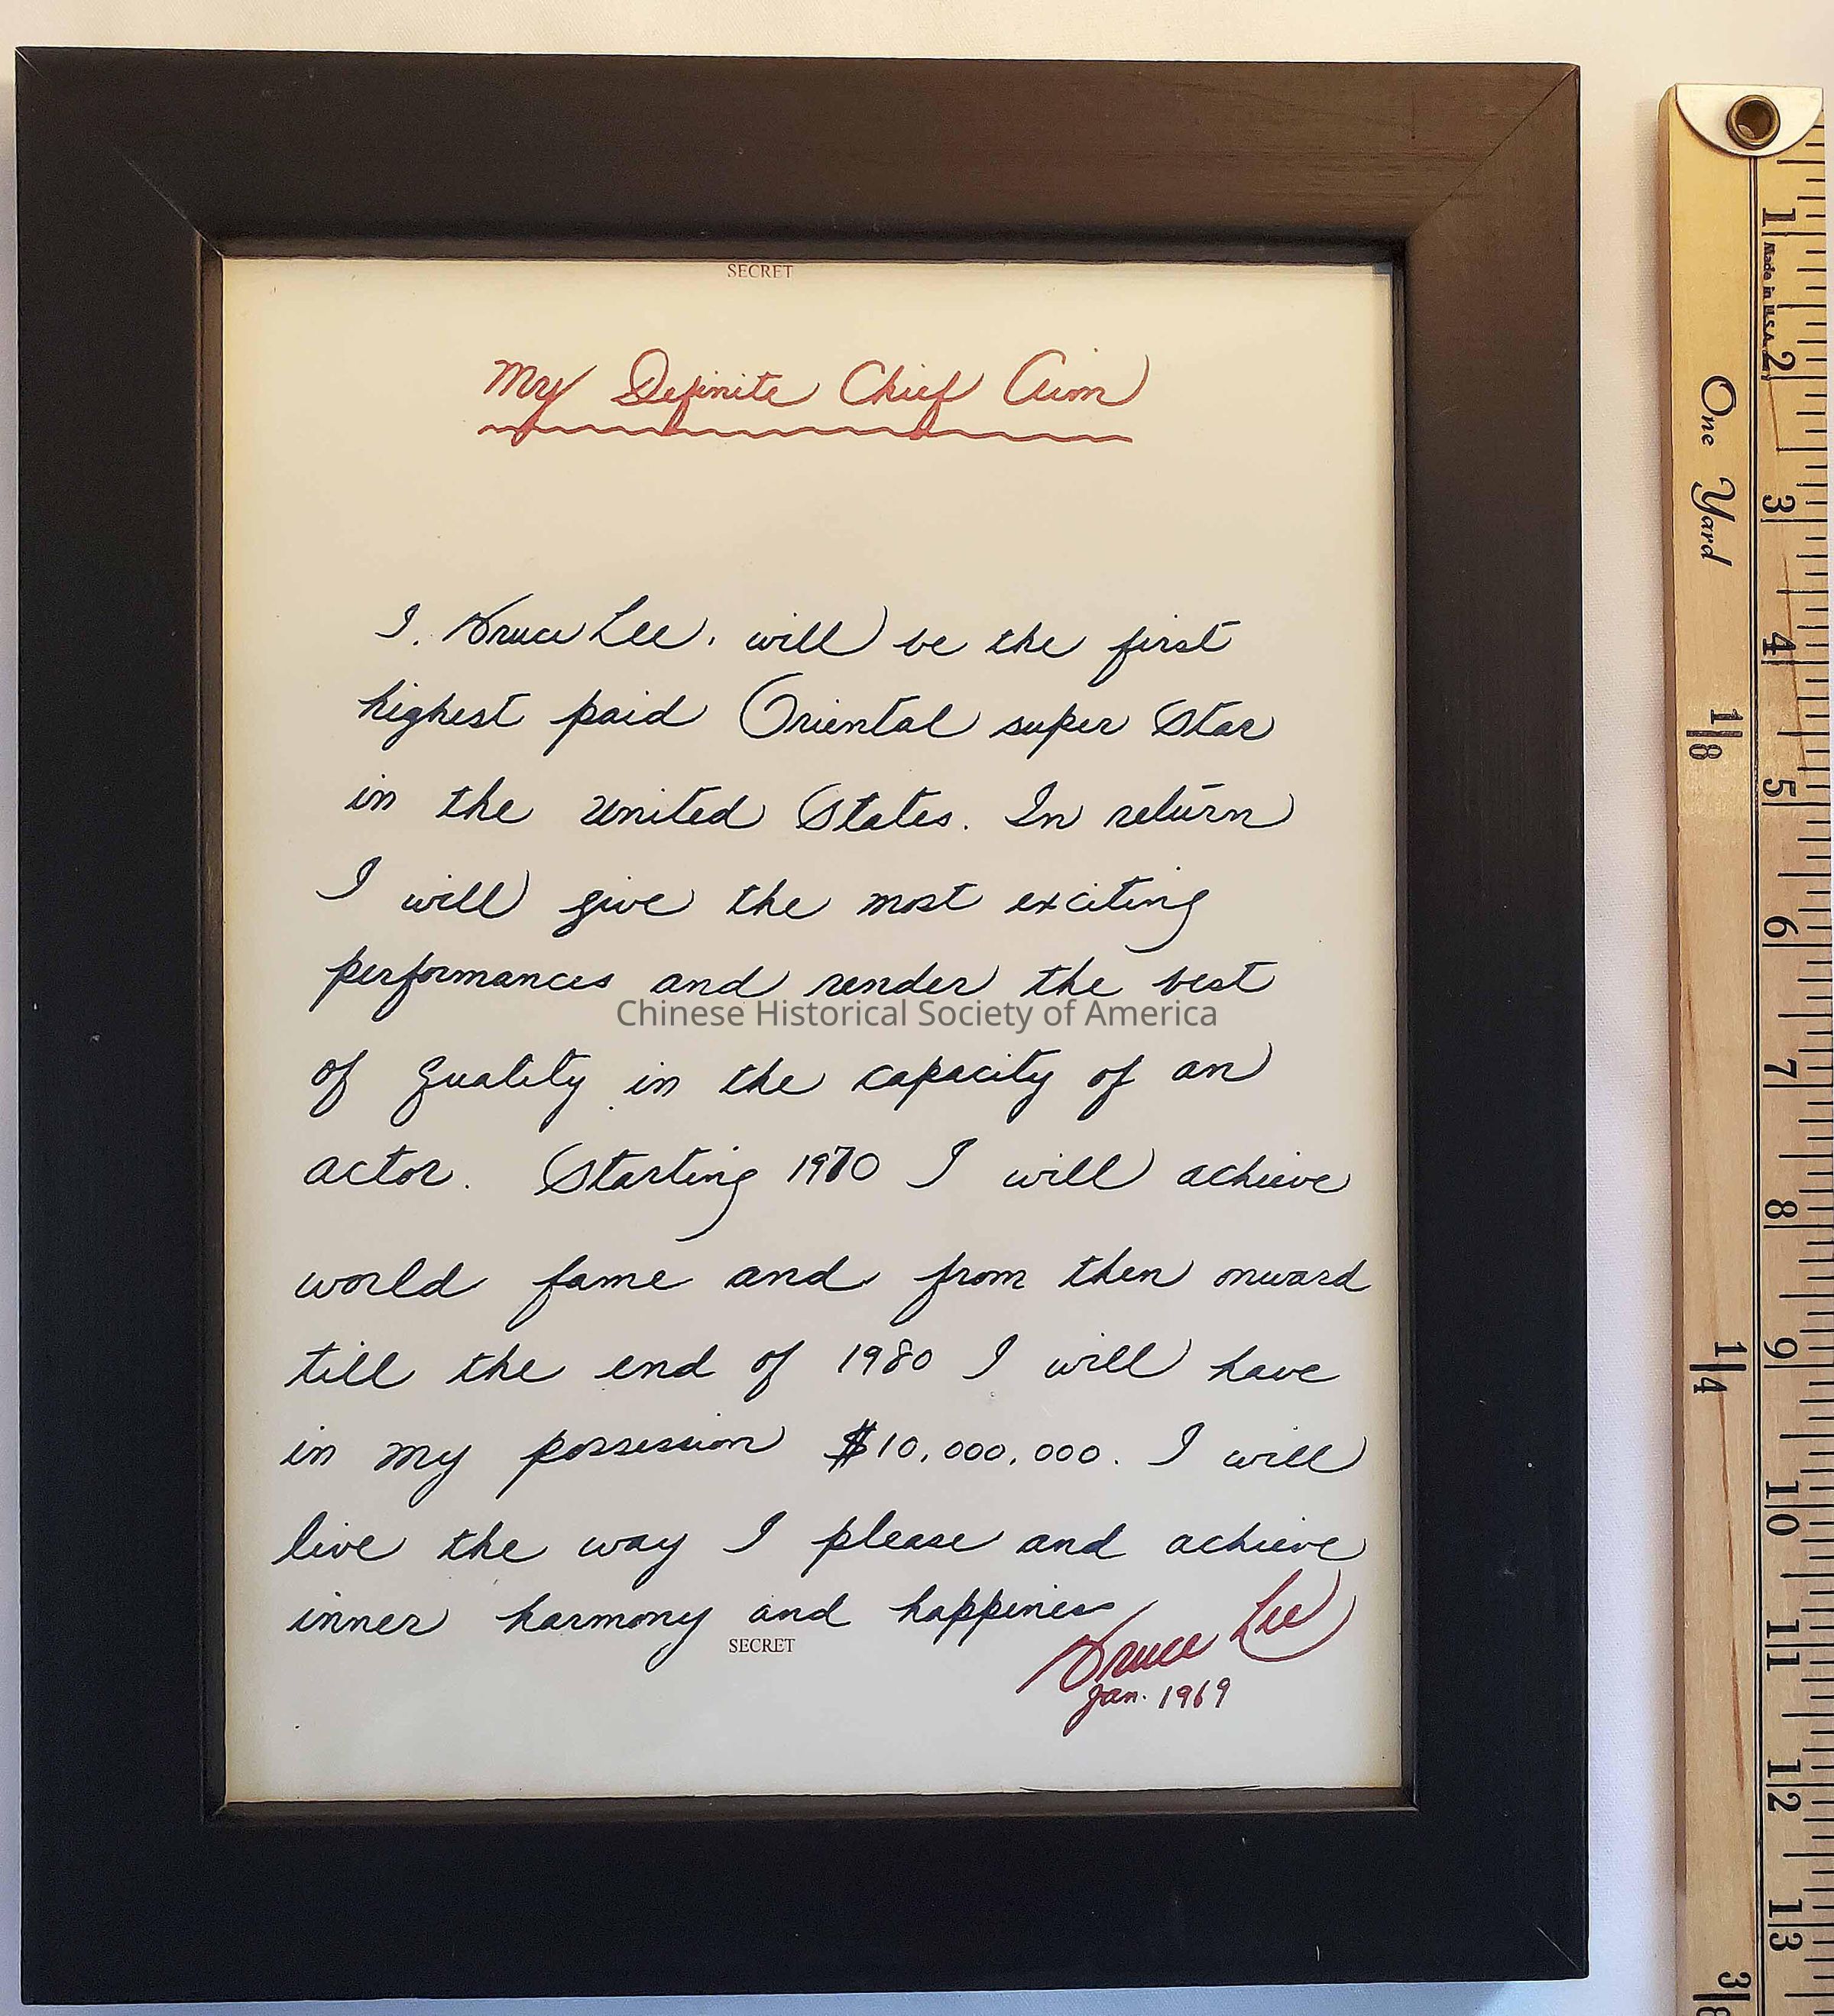 SECRET
My Definite Chief Aim
I, Bruce Lee, will be the first
highest paid Oriental super Star
in the United States. In return
I will give the most exciting
performances and render the best
Chinese Historical Society of America
of quality in the capacity of an
actor. Starting 1970 I will achieve
world fame and from then onward
till the end of 1980 I will have
in my possession $10,000,000. I will
live the way I please and achieve
inner harmony and happiness
SECRET
Bruce Lee
Jan. 1969
One Yard
Made in U.S.A.
1
2
3
4
1/8
5
6
7
8
9
1/4
10
11
12
13
3/8